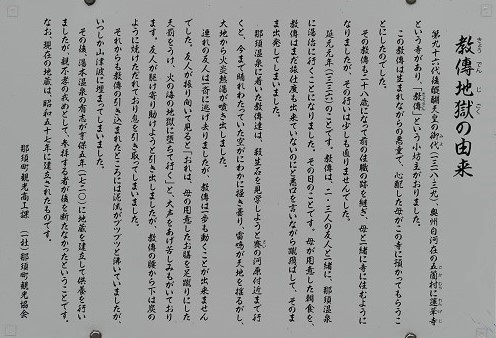 教傳地獄の由来
きょうでんじごく
第九十六代後醍醐天皇の御代(一三一八~三九)、奥州白河在の五箇村に蓮華寺
という寺があり、「教傳」という小坊主がおりました。
この教傳は生まれながらの悪童で、心配した母がこの寺に預かってもらうこ
とにしたのでした。
その教傳も二十八歳になって前の住職の跡を継ぎ、母と一緒に寺に住むように
なりましたが、その行いは少しも直りませんでした。
延元元年(一三三六)のことです。教傳は、二・三人の友人と一緒に、那須温泉
に湯治に行くことになりました。その日のことです。母が用意した朝食を、
教傳はまだ旅仕度も出来ていないのにと悪口を言いながら蹴飛ばして、そのま
ま出発してしまいました。
那須温泉に着いた教傳達は、殺生石を見学しようと賽の河原付近まで行
くと、今まで晴れわたっていた空がにわかに掻き曇り、雷鳴が天地を揺るがし、
大地から火炎熱湯が噴き出しました。
連れの友人は一斉に逃げ去りましたが、教傳は一歩も動くことが出来ません
でした。友人が振り向いて見ると「おれは、母の用意したお膳を足蹴りにした
天罰をうけ、火の海の地獄に堕ちて行く」と、大声をあげ苦しみもがいており
ます。友人が駆け寄り助けようと引き出しましたが、教傳の腰から下は炭の
ように焼けただれており息を引き取ってしまいました。
それからも教傳の引き込まれたところには泥流がブツブツと沸いていましたが、
いつしか山津波に埋まってしまいました。
その後、湯本温泉の有志が享保五年(一七二〇)に地蔵を建立して供養を行い
ましたが、親不孝の戒めとして、参拝する者が後を断たなかったということです。
なお、現在の地蔵は、昭和五十七年に建立されたものです。
那須町観光商工課 (一社)那須町観光協会